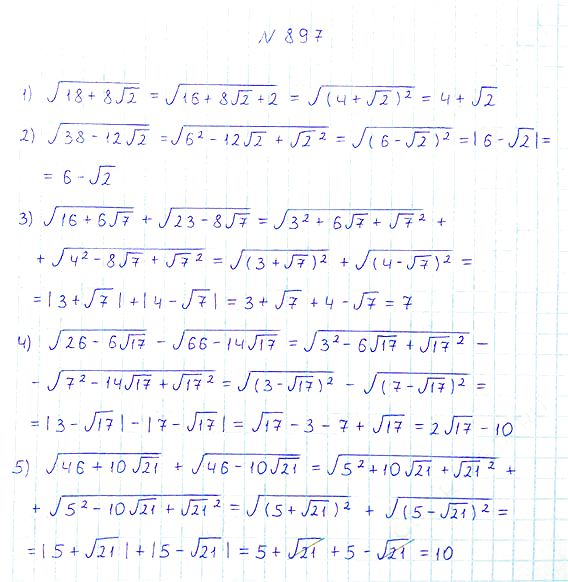 N 897
1) √(18 + 8√2) = √(16 + 8√2 + 2) = √((4 + √2)²) = 4 + √2
2) √(38 - 12√2) = √(6² - 12√2 + √2²) = √((6 - √2)²) = |6 - √2| =
= 6 - √2
3) √(16 + 6√7) + √(23 - 8√7) = √(3² + 6√7 + √7²) +
+ √(4² - 8√7 + √7²) = √((3 + √7)²) + √((4 - √7)²) =
= |3 + √7| + |4 - √7| = 3 + √7 + 4 - √7 = 7
4) √(26 - 6√17) - √(66 - 14√17) = √(3² - 6√17 + √17²) -
- √(7² - 14√17 + √17²) = √((3 - √17)²) - √((7 - √17)²) =
= |3 - √17| - |7 - √17| = √17 - 3 - 7 + √17 = 2√17 - 10
5) √(46 + 10√21) + √(46 - 10√21) = √(5² + 10√21 + √21²) +
+ √(5² - 10√21 + √21²) = √((5 + √21)²) + √((5 - √21)²) =
= |5 + √21| + |5 - √21| = 5 + √21 + 5 - √21 = 10